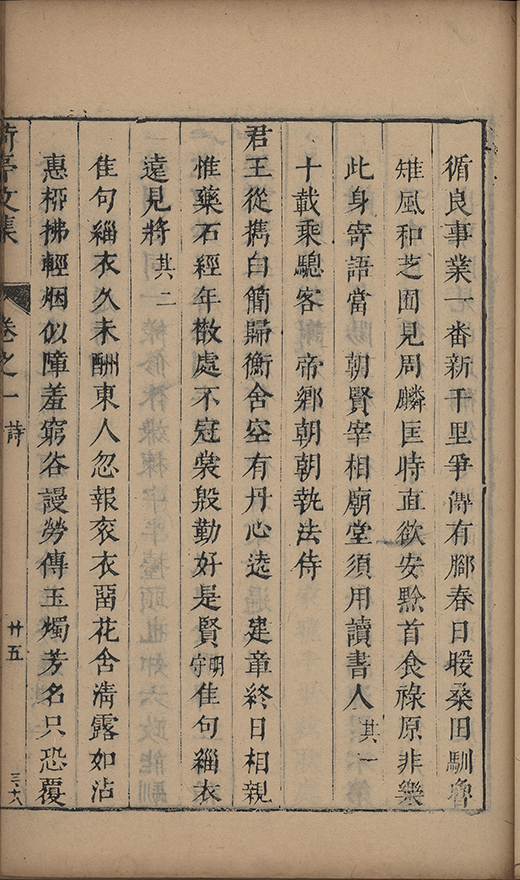 循良事業一番新千里爭傳有腳春日暖桑田馴魯
雉風和芝囿見周麟匡時直欲安黔首食祿原非樂
此身寄語當　朝賢宰相廟堂須用讀書人其一
十載乘驄客　帝鄉朝朝執法侍
君王從攜白簡歸衡舍空有丹心遶　建章終日相親
惟藥石經年散處不冠裳殷勤好是賢明守佳句緇衣
遠見將其二
佳句緇衣久未酬東人忽報衮衣留花舍淸露如沾
惠桺拂輕烟似障羞窮谷謾勞傳玉燭芳名只恐覆
亭文集
卷之一　詩
廿五
三十八